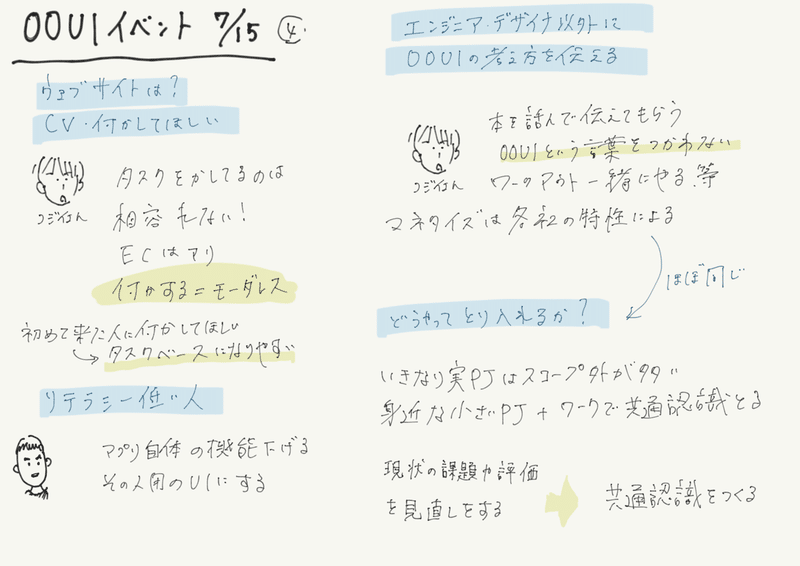 OOUIイベント 7/15 ④
ウェブサイトは?
CV・付かしてほしい
コジイさん
タスクをかしてるのは
相容れない!
ECはアリ
付かする=モーダレス
初めて来た人に付かしてほしい
タスクベースになりやすい
リテラシー低い人
アプリ自体の機能下げる
その人用のUIにする
エンジニア・デザイナ以外に
OOUIの考え方を伝える
コジイさん
本を読んで伝えてもらう
OOUIという言葉をつかわない
ワークアウト一緒にやる 等
マネタイズは各社の特性による
ほぼ同じ
どうやってとり入れるか?
いきなり実PJはスコープ外が多い
身近な小さいPJ+ワークで共通認識とる
現状の課題や評価
を見直しをする
共通認識をつくる